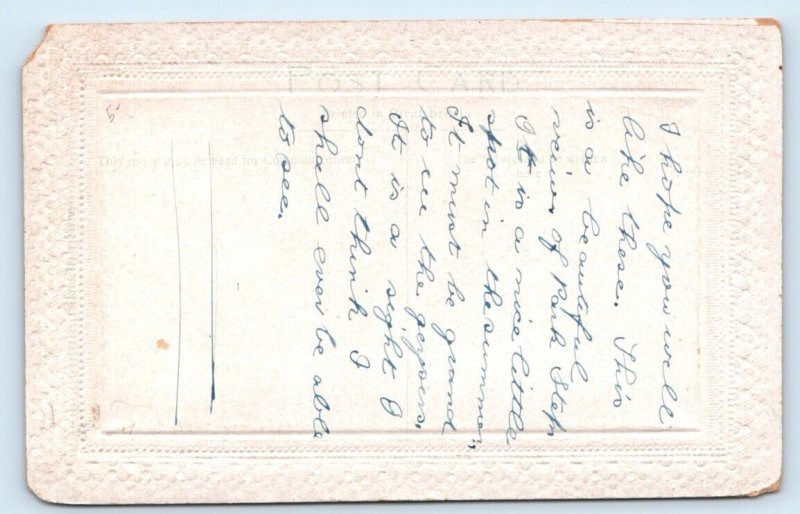 POST CARD
This space may be used for Communication
I hope you will
like these. This
is a beautiful
view of Park Step.
It is a nice little
spot in the summer,
It must be grand
to see the geysers.
It is a sight I
dont think I
shall ever be able
to see.
5